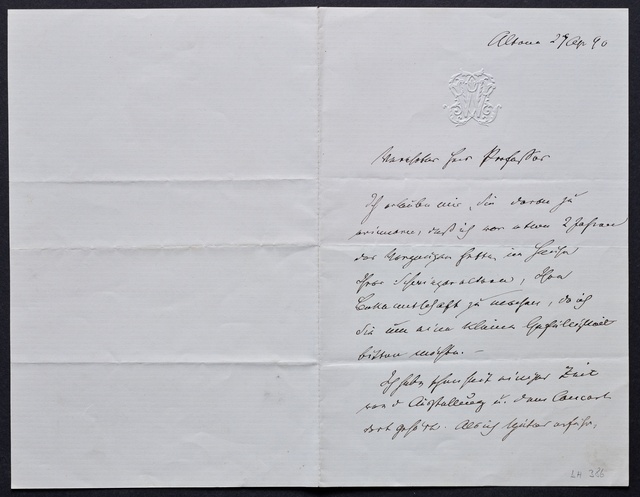 Altona 29 Apr 90
Verehrter Herr Professor
Ich erlaube mir, Sie daran zu
erinnern, daß ich vor etwa 2 Jahren
das Vergnügen hatte, im Hause
Ihrer Schwiegereltern, Ihre
Bekanntschaft zu machen, da ich
Sie um eine kleine Gefälligkeit
bitten möchte. –
Ich habe schon seit einiger Zeit
von d. Ausstellung u. dem Concert
dort gehört. Als ich später erfuhr,